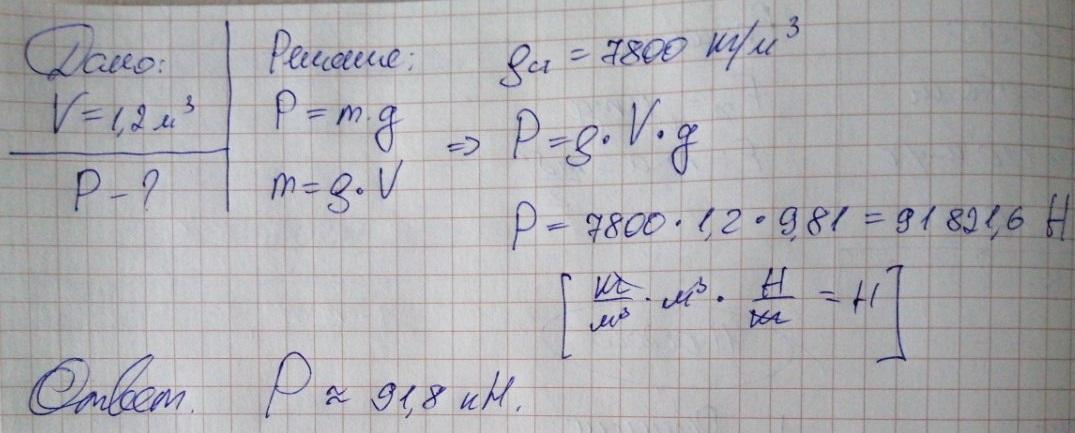 Дано:
V = 1,2 м³
P - ?
Решение:
P = m·g
m = ρ·V
ρст = 7800 кг/м³
=> P = ρ·V·g
P = 7800·1,2·9,81 = 91821,6 Н
[кг/м³ · м³ · Н/кг = Н]
Ответ. P ≈ 91,8 кН.